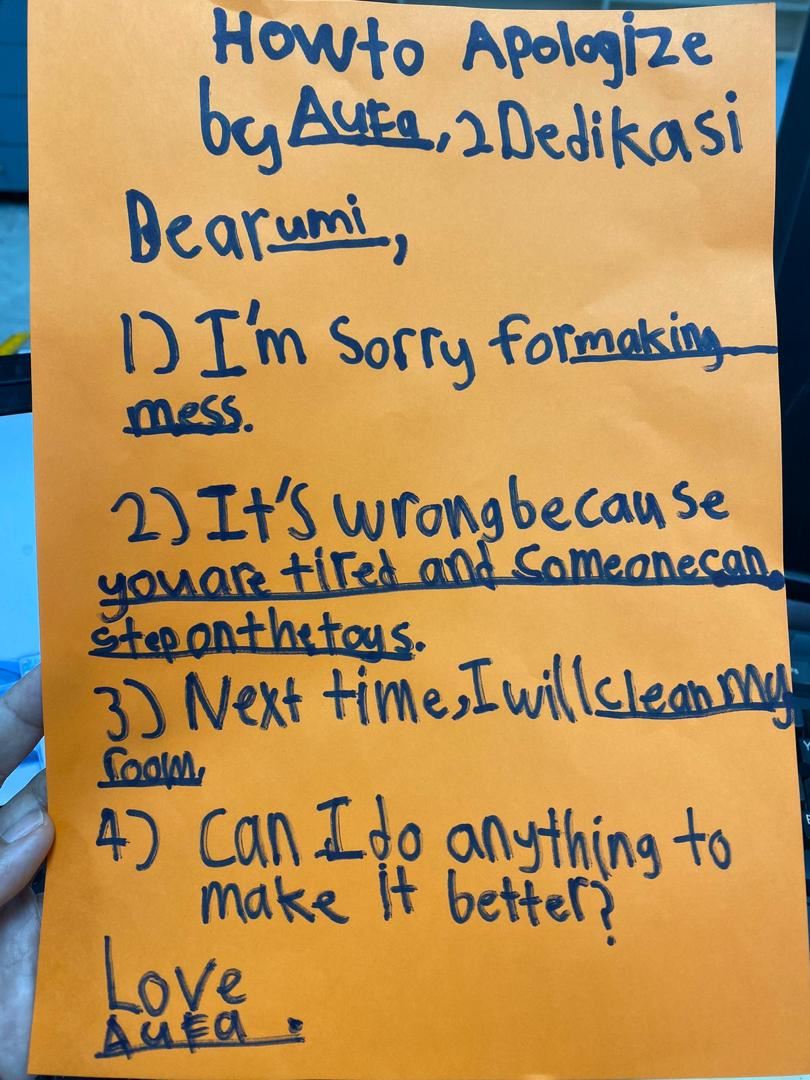 How to Apologize
by Aufa, 2 Dedikasi
Dear umi,
1) I'm sorry for making
mess.
2) It's wrong because
you are tired and someone can
step on the toys.
3) Next time, I will clean my
room.
4) Can I do anything to
make it better?
Love
Aufa.